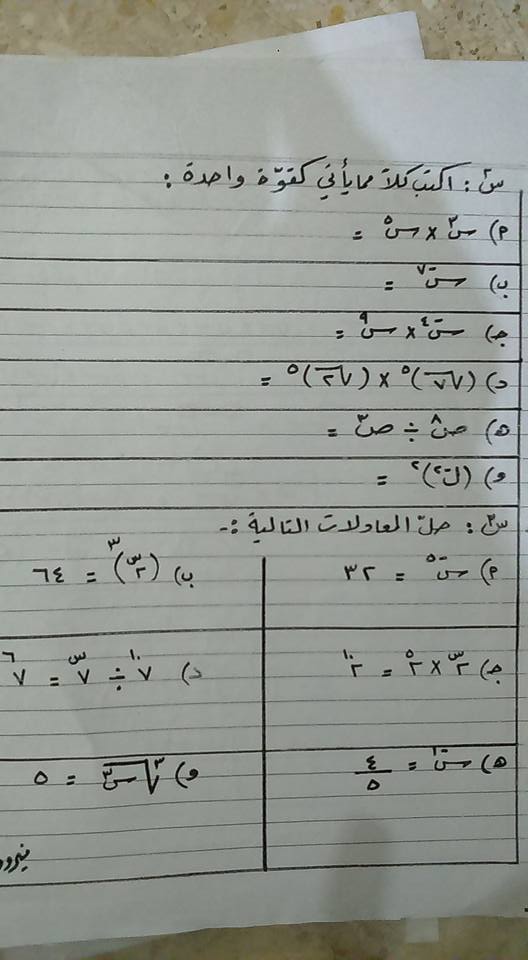 س١: اكتب كلاً مما يأتي كقوة واحدة:
أ) س٣ × س٥ =
ب) س-٧ =
ج) س-٤ × س٩ =
د) (√٧)٥ × (√٢)٥ =
ه) ص٨ ÷ ص٣ =
و) (ل-٢)٢ =
س٢: حل المعادلات التالية:-
أ) س٥ = ٣٢
ب) (٢س)٣ = ٦٤
ج) ٢س × ٢٥ = ٢١٠
د) ٧١٠ ÷ ٧س = ٧٦
ه) س-١ = ٤/٥
و) ٣√س٣ = ٥